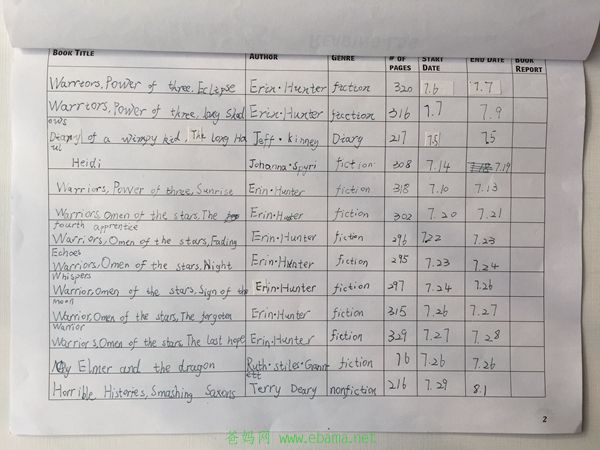 BOOK TITLE AUTHOR GENRE # OF PAGES START DATE END DATE BOOK REPORT
Warriors, Power of three, Eclipse Erin·Hunter fiction 320 7.6 7.7
Warriors, Power of three, long Shad Erin·Hunter fuction 316 7.7 7.9
ows
Diary of a wimpy kid, The Long Ha Jeff·kinney Diary 217 7.5 7.5
ul
Heidi Johanna·Spyri fiction 308 7.14 7.19
Warriors, Power of three, Sunrise Erin·Hunter fiction 318 7.10 7.13
Warriors, Omen of the stars, The Erin·Hunter fiction 302 7.20 7.21
fourth apprentice
Warriors, Omen of the stars, Fading Erin·Hunter fiction 296 7.22 7.23
Echoes
Warriors, Omen of the stars, Night Erin·Hunter fiction 295 7.23 7.24
Whispers
Warrior, Omen of the stars, Sign of the Erin·Hunter fiction 297 7.24 7.26
moon
Warrior, Omen of the stars, The forgoten Erin·Hunter fiction 315 7.26 7.27
Warrior
Warriors, Omen of the stars, The last hope Erin·Hunter fiction 329 7.27 7.28
My Elmer and the dragon Ruth·stiles·Gann fiction 16 7.26 7.26
ett
Horrible Histories, Smashing Saxons Terry Deary nonfiction 216 7.29 8.1
2
爸妈网 www.ebama.net